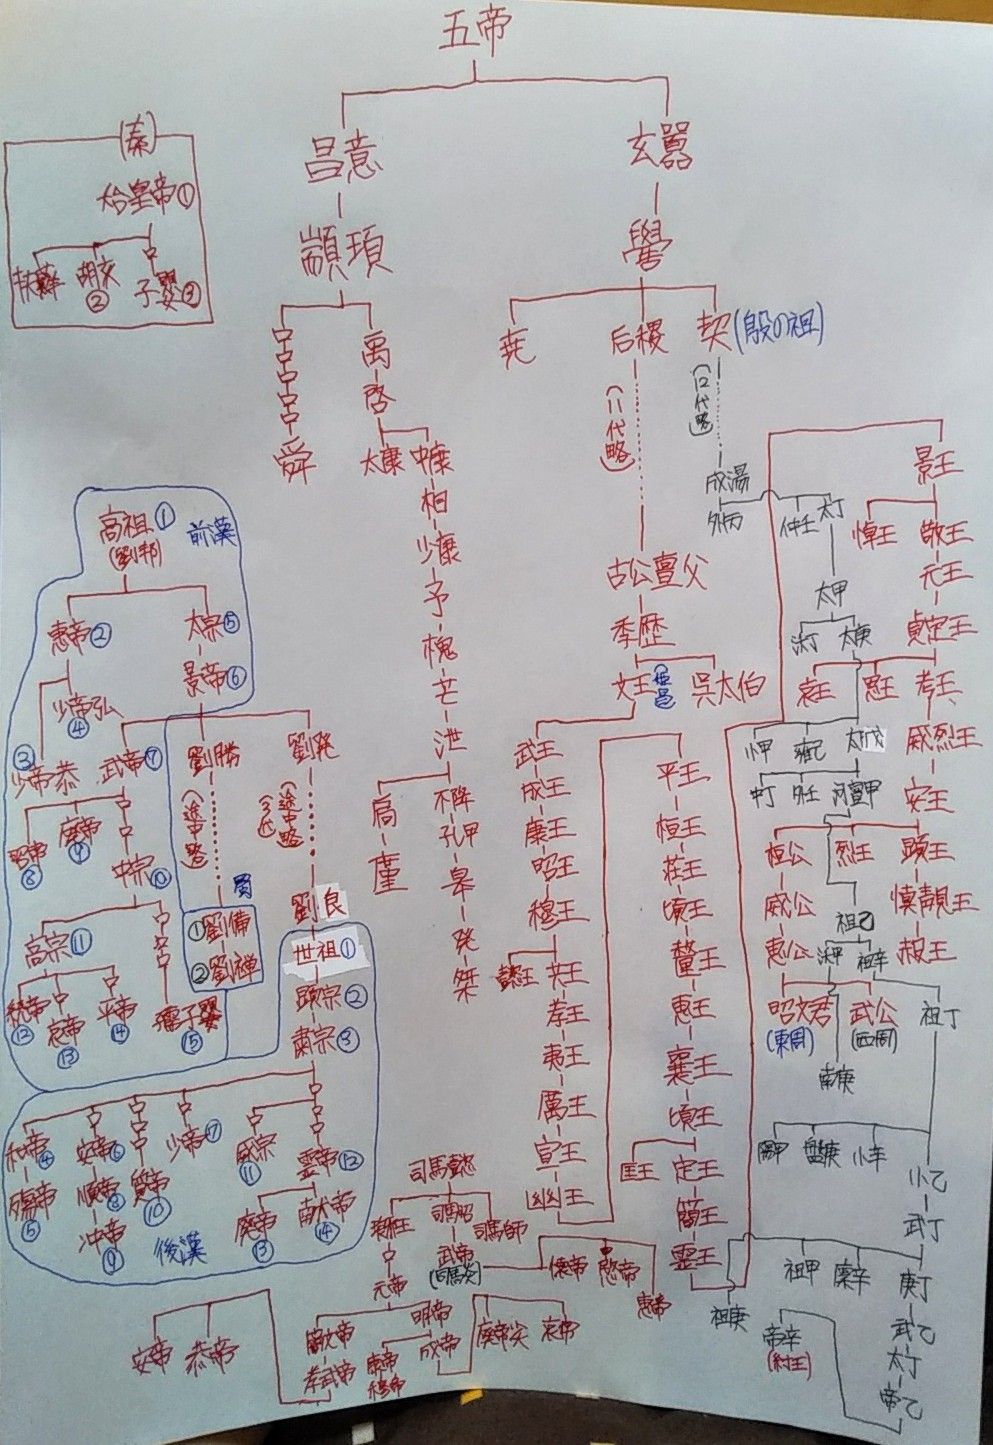 五帝
昌意
玄囂
顓頊
嚳
(秦)
始皇帝①
扶蘇
胡亥②
子嬰③
口口口口口
舜
禹
啓
太康
中康
相
少康
予
槐
芒
泄
扃
廑
不降
孔甲
皋
発
桀
堯
后稷
契(殷の祖)
(一一代略)
(12代略)
古公亶父
季歴
文王
呉太伯
武王
成王
康王
昭王
穆王
懿王
共王
孝王
夷王
厲王
宣王
幽王
平王
桓王
荘王
惠王
襄王
頃王
匡王
定王
簡王
霊王
景王
悼王
敬王
元王
貞定王
哀王
思王
考王
威烈王
安王
桓公
烈王
顕王
威公
慎靚王
恵公
赧王
昭文君
(東周)
武公
(西周)
成湯
外丙
仲壬
太丁
太甲
沃丁
太庚
小甲
雍己
太戊
中丁
外壬
河亶甲
祖乙
沃甲
祖辛
祖丁
南庚
陽甲
盤庚
小辛
小乙
武丁
祖庚
祖甲
廩辛
庚丁
武乙
太丁
帝乙
帝辛
(紂王)
高祖①
(劉邦)
前漢
惠帝②
太宗⑤
景帝⑥
少帝弘④
③少帝恭
武帝⑦
劉勝
劉発
(途中略)
(途中略
3代)
昭帝⑧
廃帝⑨
中宗⑩
高宗⑪
成帝⑫
哀帝⑬
平帝⑭
孺子嬰⑮
蜀
①劉備
②劉禅
劉良
世祖①
顕宗②
粛宗③
和帝④
殤帝⑤
安帝⑥
順帝⑧
冲帝⑨
質帝⑩
少帝⑦
威宗⑪
霊帝⑫
廃帝⑬
献帝⑭
後漢
司馬懿
司馬昭
司馬師
武帝
(司馬炎)
懐帝
愍帝
惠帝
元帝
明帝
簡文帝
孝武帝
成帝
康帝
穆帝
廃帝奕
哀帝
安帝
恭帝